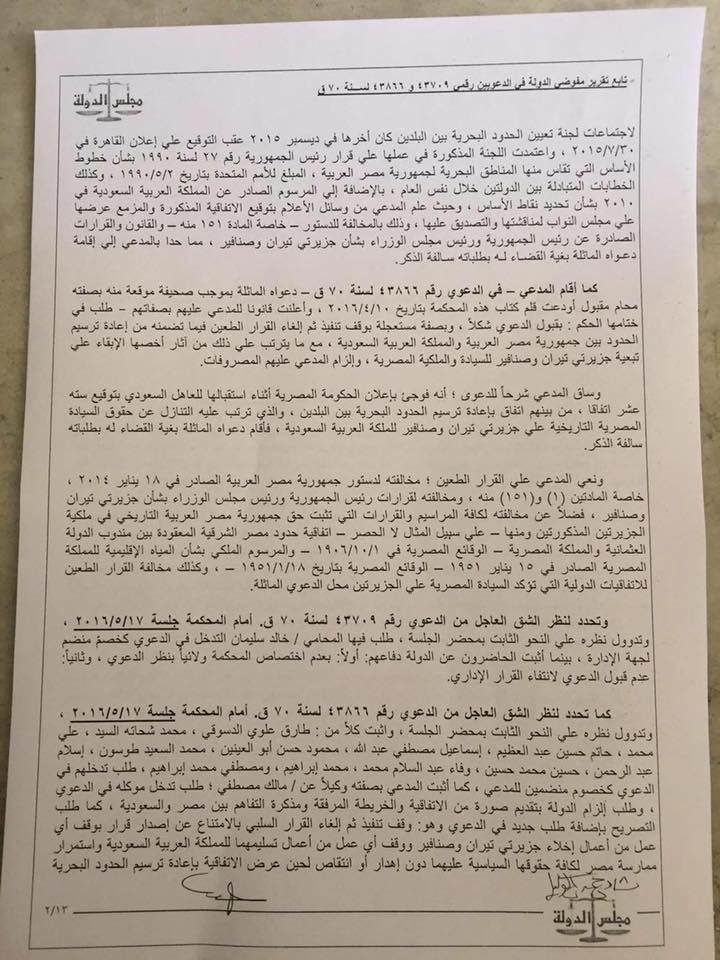 - تابع تقرير مفوضي الدولة في الدعويين رقمي ٤٣٧٠٩ و ٤٣٨٦٦ لسنة ٧٠ ق
مجلس الدولة
لاجتماعات لجنة تعيين الحدود البحرية بين البلدين كان أخرها في ديسمبر ٢٠١٥ عقب التوقيع علي إعلان القاهرة في
٢٠١٥/٧/٣٠ ، واعتمدت اللجنة المذكورة في عملها علي قرار رئيس الجمهورية رقم ٢٧ لسنة ١٩٩٠ بشأن خطوط
الأساس التي تقاس منها المناطق البحرية لجمهورية مصر العربية ، المبلغ للأمم المتحدة بتاريخ ١٩٩٠/٥/٢ ، وكذلك
الخطابات المتبادلة بين الدولتين خلال نفس العام ، بالإضافة إلي المرسوم الصادر عن المملكة العربية السعودية في
٢٠١٠ بشأن تحديد نقاط الأساس ، وحيث علم المدعي من وسائل الأعلام بتوقيع الاتفاقية المذكورة والمزمع عرضها
علي مجلس النواب لمناقشتها والتصديق عليها ، وذلك بالمخالفة للدستور – خاصة المادة ١٥١ منه – والقانون والقرارات
الصادرة عن رئيس الجمهورية ورئيس مجلس الوزراء بشأن جزيرتي تيران وصنافير ، مما حدا بالمدعي إلي إقامة
دعواه الماثلة بغية القضاء لـه بطلباته سالفة الذكر.
كما أقام المدعي – في الدعوي رقم ٤٣٨٦٦ لسنة ٧٠ ق – دعواه الماثلة بموجب صحيفة موقعة منه بصفته
محام مقبول أودعت قلم كتاب هذه المحكمة بتاريخ ٢٠١٦/٤/١٠ ، وأعلنت قانونا للمدعي عليهم بصفاتهم – طلب في
ختامها الحكم : بقبول الدعوي شكلاً ، وبصفة مستعجلة بوقف تنفيذ ثم إلغاء القرار الطعين فيما تضمنه من إعادة ترسيم
الحدود بين جمهورية مصر العربية والمملكة العربية السعودية ، مع ما يترتب علي ذلك من أثار أخصها الإبقاء علي
تبعية جزيرتي تيران وصنافير للسيادة والملكية المصرية ، وإلزام المدعي عليهم المصروفات.
وساق المدعي شرحاً للدعوى ؛ أنه فوجئ بإعلان الحكومة المصرية أثناء استقبالها للعاهل السعودي بتوقيع سته
عشر اتفاقا ، من بينهم اتفاق بإعادة ترسيم الحدود البحرية بين البلدين ، والذي ترتب عليه التنازل عن حقوق السيادة
المصرية التاريخية علي جزيرتي تيران وصنافير للملكة العربية السعودية ، فأقام دعواه الماثلة بغية القضاء له بطلباته
سالفة الذكر.
ونعي المدعي علي القرار الطعين ؛ مخالفته لدستور جمهورية مصر العربية الصادر في ١٨ يناير ٢٠١٤ ،
خاصة المادتين (١) و(١٥١) منه ، ومخالفته لقرارات رئيس الجمهورية ورئيس مجلس الوزراء بشأن جزيرتي تيران
وصنافير ، فضلاً عن مخالفته لكافة المراسيم والقرارات التي تثبت حق جمهورية مصر العربية التاريخي في ملكية
الجزيرتين المذكورتين ومنها – علي سبيل المثال لا الحصر – اتفاقية حدود مصر الشرقية المعقودة بين مندوب الدولة
العثمانية والمملكة المصرية – الوقائع المصرية في ١٩٠٦/١٠/١ – والمرسوم الملكي بشأن المياه الإقليمية للمملكة
المصرية الصادر في ١٥ يناير ١٩٥١ – الوقائع المصرية بتاريخ ١٩٥١/١/١٨ – ، وكذلك مخالفة القرار الطعين
للاتفاقيات الدولية التي تؤكد السيادة المصرية علي الجزيرتين محل الدعوي الماثلة.
وتحدد لنظر الشق العاجل من الدعوي رقم ٤٣٧٠٩ لسنة ٧٠ ق. أمام المحكمة جلسة ٢٠١٦/٥/١٧ ،
وتدوول نظره علي النحو الثابت بمحضر الجلسة ، طلب فيها المحامي / خالد سليمان التدخل في الدعوي كخصم منضم
لجهة الإدارة ، بينما أثبت الحاضرون عن الدولة دفاعهم: أولاً: بعدم اختصاص المحكمة ولائياً بنظر الدعوي ، وثانياً:
عدم قبول الدعوي لانتفاء القرار الإداري.
كما تحدد لنظر الشق العاجل من الدعوي رقم ٤٣٨٦٦ لسنة ٧٠ ق. أمام المحكمة جلسة ٢٠١٦/٥/١٧ ،
وتدوول نظره علي النحو الثابت بمحضر الجلسة ، واثبت كلاً من : طارق علوي الدسوقي ، محمد شحاته السيد ، علي
محمد ، حاتم حسين عبد العظيم ، إسماعيل مصطفي عبد الله ، محمود حسن أبو العينين ، محمد السعيد طوسون ، إسلام
عبد الرحمن ، حسين محمد حسين ، وفاء عبد السلام محمد ، محمد إبراهيم ، ومصطفي محمد إبراهيم ، طلب تدخلهم في
الدعوي كخصوم منضمين للمدعي ، كما أثبت المدعي بصفته وكيلاً عن / مالك مصطفي ؛ طلب تدخل موكله في الدعوي
، وطلب إلزام الدولة بتقديم صورة من الاتفاقية والخريطة المرفقة ومذكرة التفاهم بين مصر والسعودية ، كما طلب
التصريح بإضافة طلب جديد في الدعوي وهو: وقف تنفيذ ثم إلغاء القرار السلبي بالامتناع عن إصدار قرار بوقف أي
عمل من أعمال إخلاء جزيرتي تيران وصنافير ووقف أي عمل من أعمال تسليمهما للمملكة العربية السعودية واستمرار
ممارسة مصر لكافة حقوقها السياسية عليهما دون إهدار أو انتقاص لحين عرض الاتفاقية بإعادة ترسيم الحدود البحرية
٢/١٣
مجلس الدولة